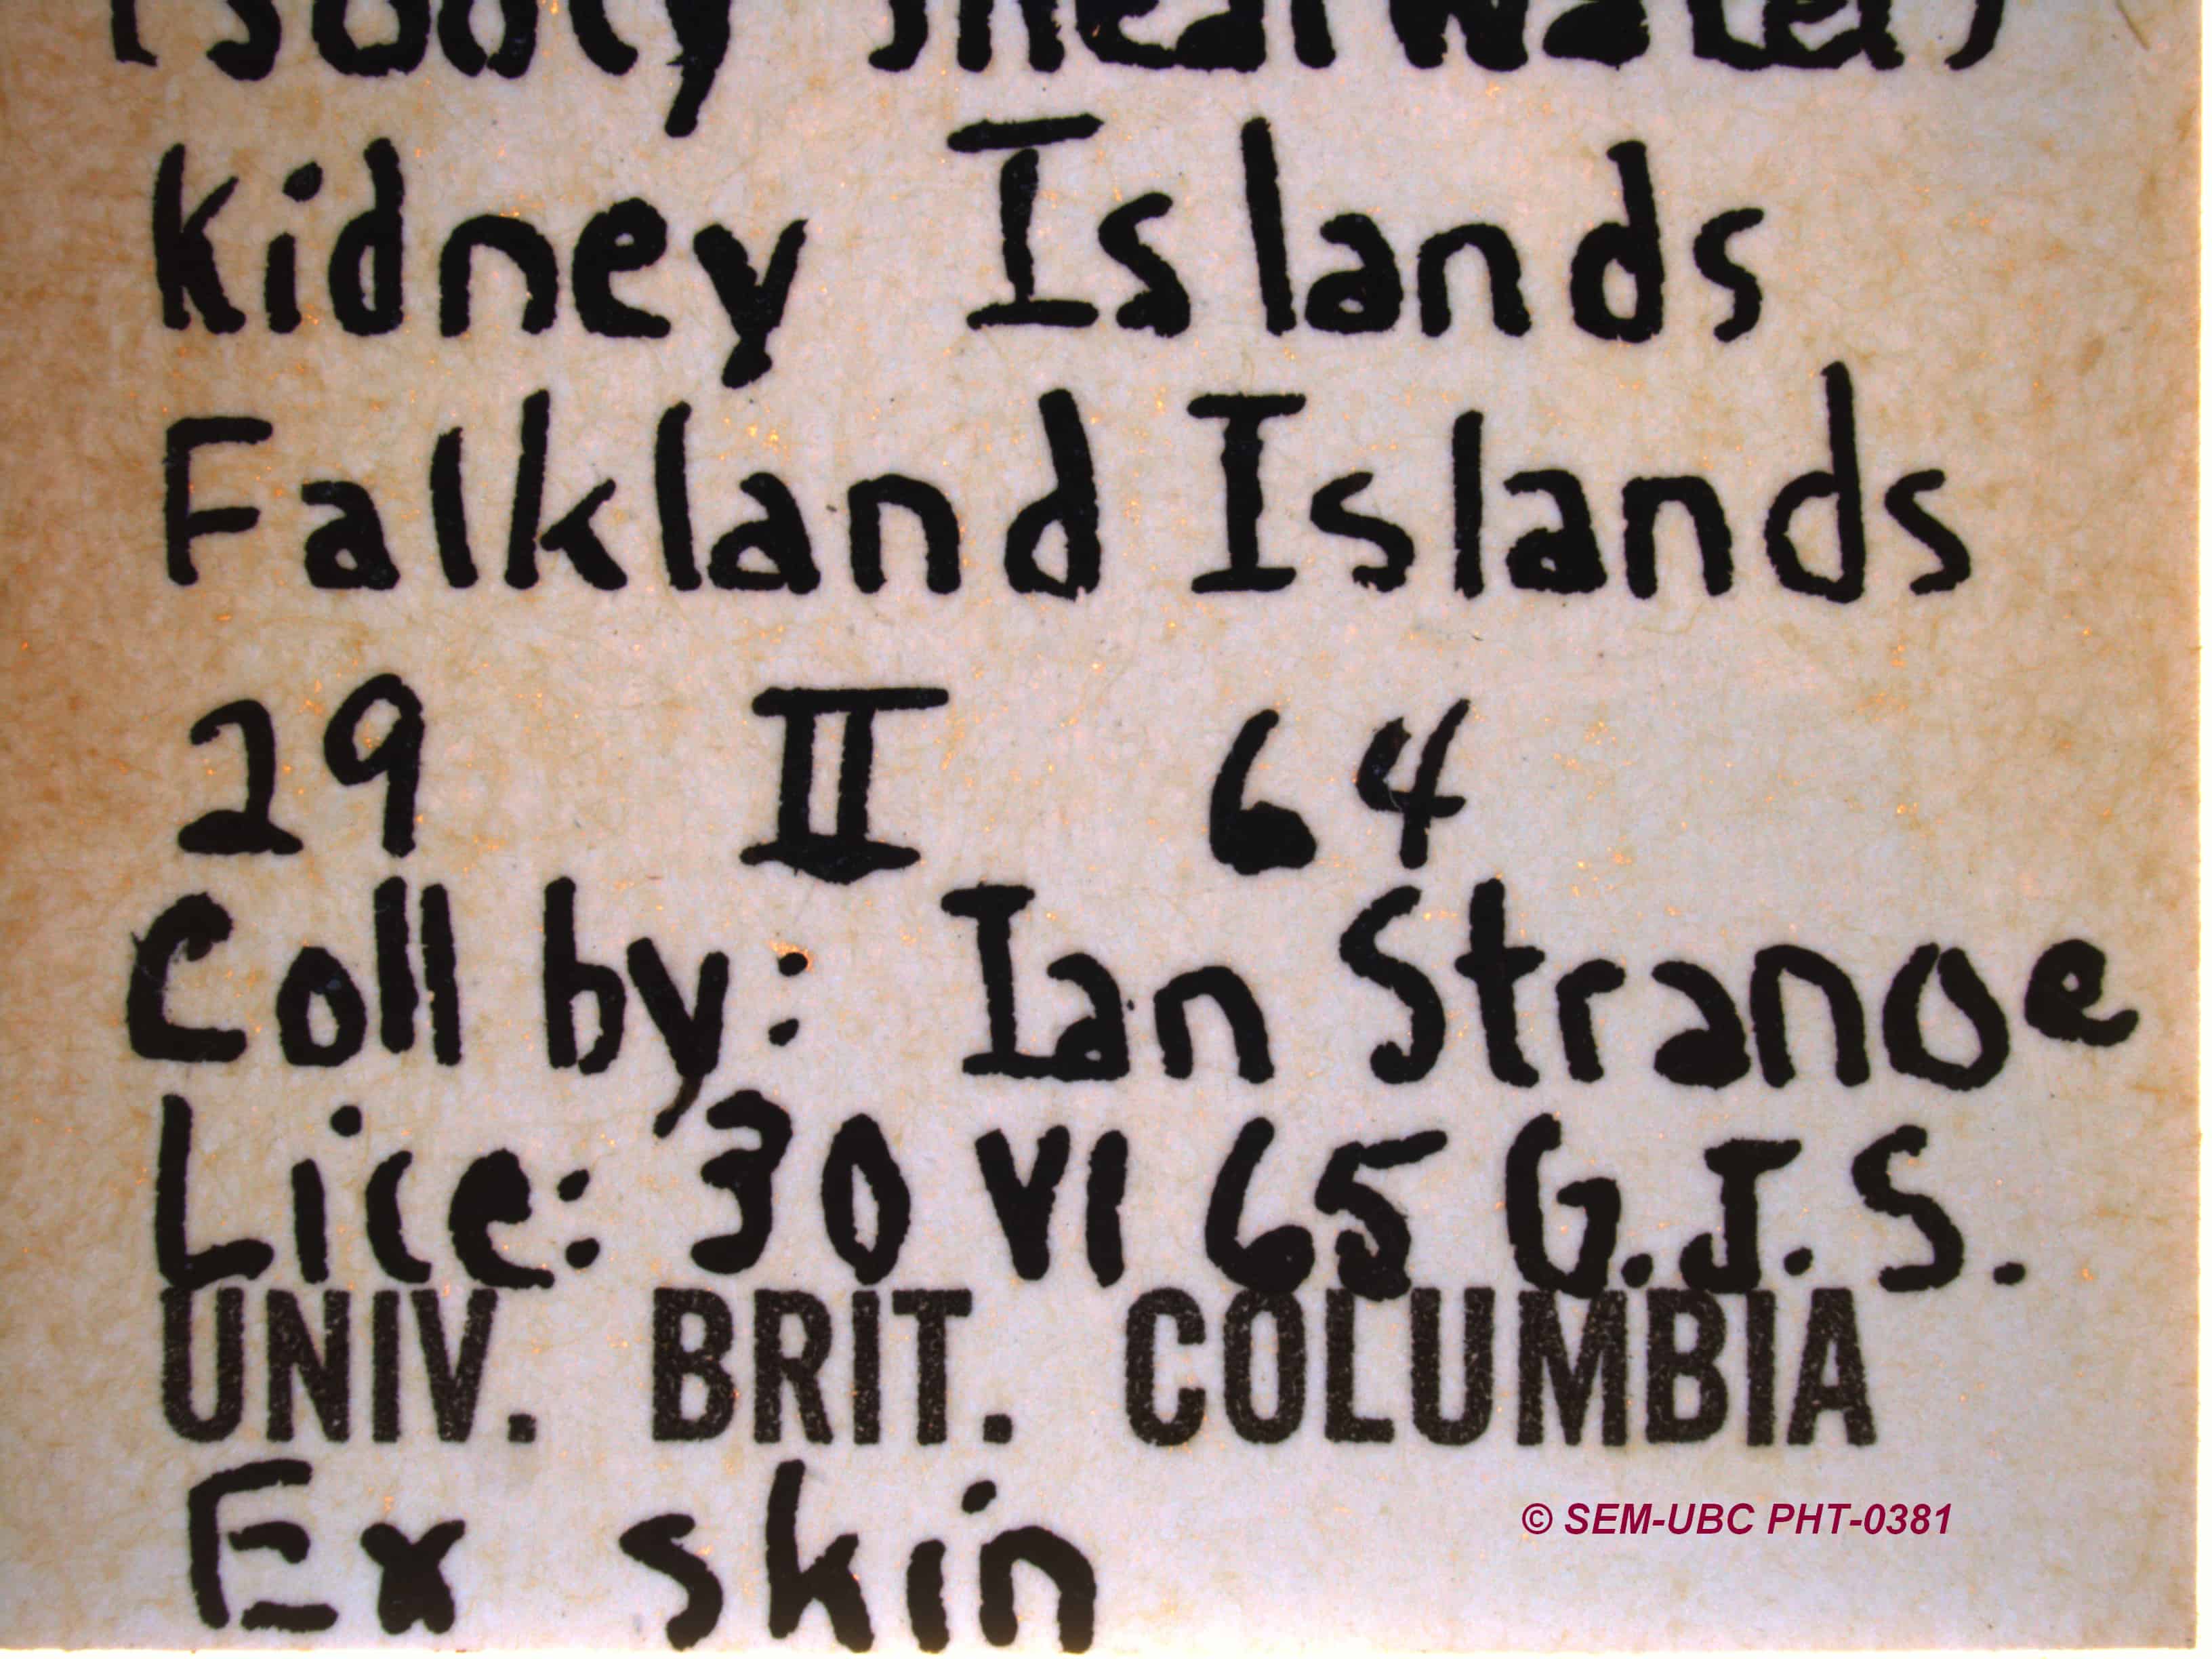 (Sooty Shearwater)
Kidney Islands
Falkland Islands
29 II 64
Coll by: Ian Strange
Lice: 30 VI 65 G.J.S.
UNIV. BRIT. COLUMBIA
Ex skin
© SEM-UBC PHT-0381